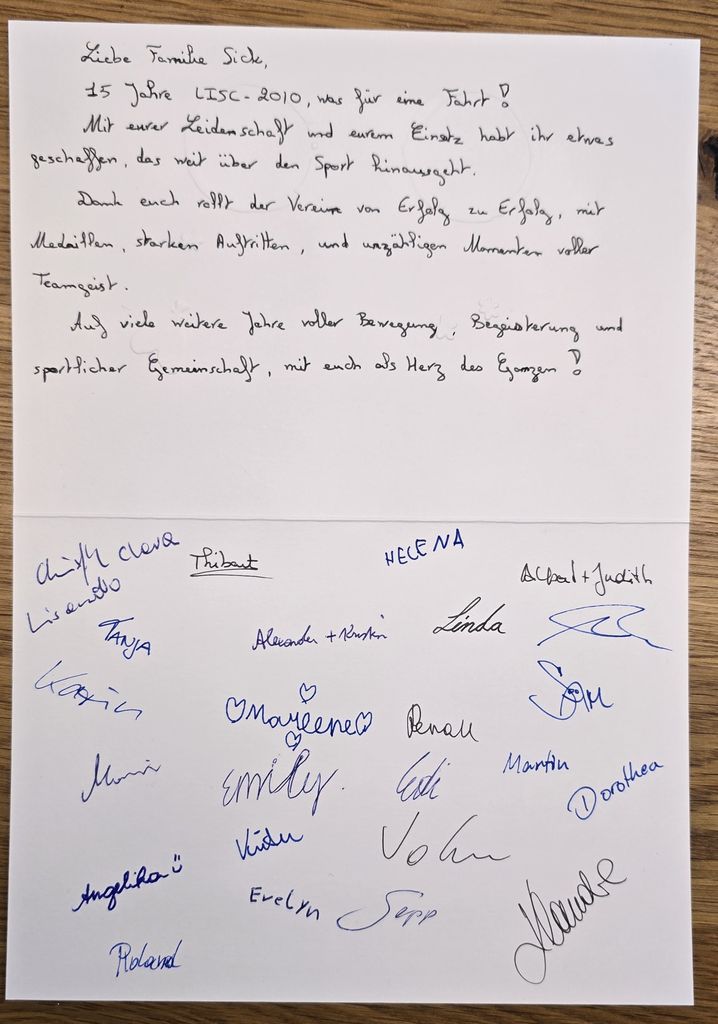 Liebe Familie Sick,
15 Jahre LISC-2010, was für eine Fahrt!
Mit eurer Leidenschaft und eurem Einsatz habt ihr etwas
geschaffen, das weit über den Sport hinausgeht.
Dank euch rollt der Verein von Erfolg zu Erfolg, mit
Medaillen, starken Auftritten, und unzähligen Momenten voller
Teamgeist.
Auf viele weitere Jahre voller Bewegung, Begeisterung und
sportlicher Gemeinschaft, mit euch als Herz des Ganzen!
HELENA
Clara
Thibaut
+ Judith
Lisandro
TANJA
Alexander + Kristin
Linda
Karin
Marleene
Renate
Emily.
Martin
Dorothea
Angelika
Evelyn
Sepp
Roland